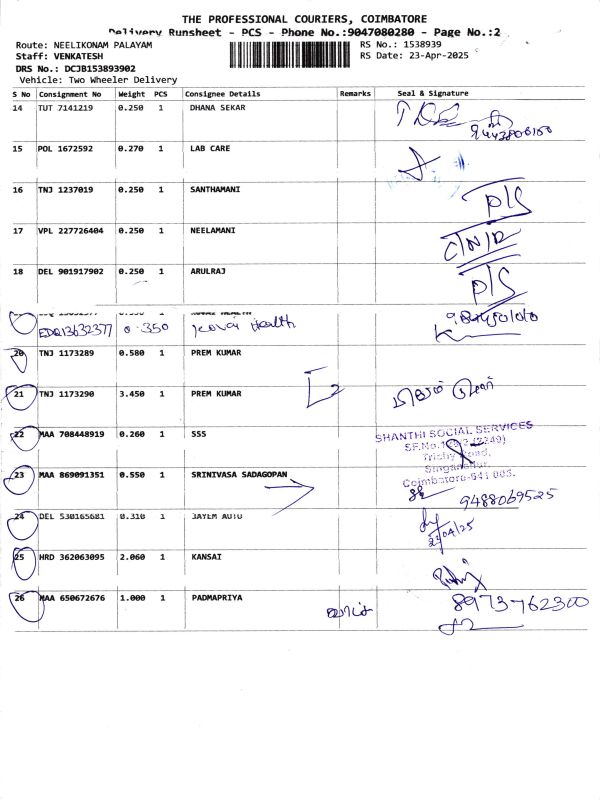 THE PROFESSIONAL COURIERS, COIMBATORE
Delivery Runsheet - PCS - Phone No.:9047080280 - Page No.:2
Route: NEELIKONAM PALAYAM
RS No.: 1538939
Staff: VENKATESH
RS Date: 23-Apr-2025
DRS No.: DCJB153893902
Vehicle: Two Wheeler Delivery
S No Consignment No Weight PCS Consignee Details Remarks Seal & Signature
14 TUT 7141219 0.250 1 DHANA SEKAR
15 POL 1672592 0.270 1 LAB CARE
16 TNJ 1237019 0.250 1 SANTHAMANI P/S
17 VPL 227726404 0.250 1 NEELAMANI C/N/R
18 DEL 901917902 0.250 1 ARULRAJ P/S
EDQ13632377 0.350 Kovai Health
20 TNJ 1173289 0.580 1 PREM KUMAR
21 TNJ 1173290 3.450 1 PREM KUMAR
22 MAA 708448919 0.260 1 SSS
SHANTHI SOCIAL SERVICES
Trichy Road,
Singanallur
Coimbatore-641 005.
23 MAA 869091351 0.550 1 SRINIVASA SADAGOPAN
9488069525
24 DEL 530165681 0.310 1 JAYEM AUTO
23/04/25
25 HRD 362063095 2.060 1 KANSAI
26 MAA 650672676 1.000 1 PADMAPRIYA
8973762300